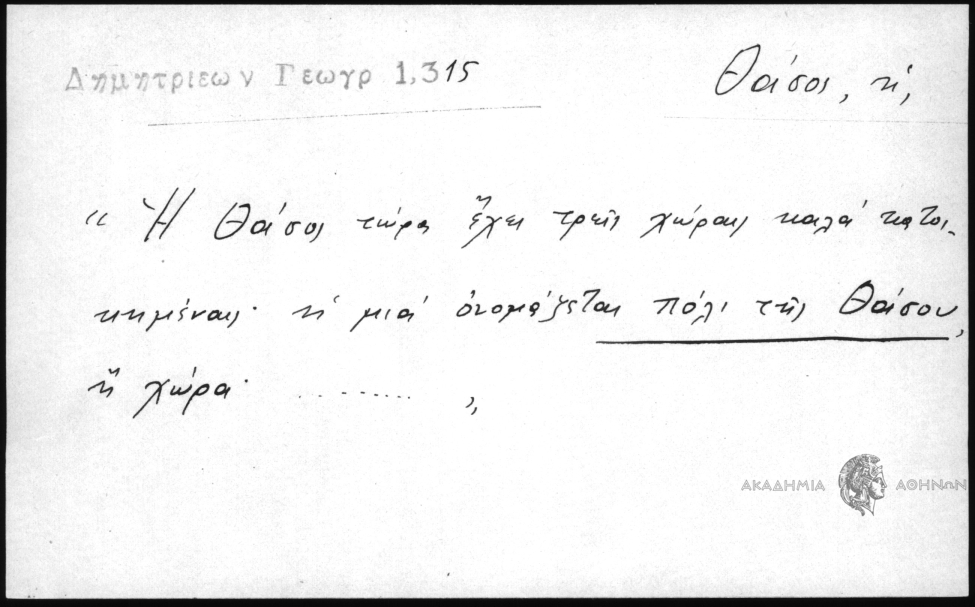 Δημητριεων Γεωγρ 1,315
Θάσος, ἡ,
“ Ἡ Θάσος τώρα ἔχει τρεῖς χώραις καλά κατοι-
κημέναις· ἡ μιά ὀνομάζεται πόλι τῆς Θάσου,
ἤ χώρα· ........ „
ΑΚΑΔΗΜΙΑ ΑΘΗΝΩΝ